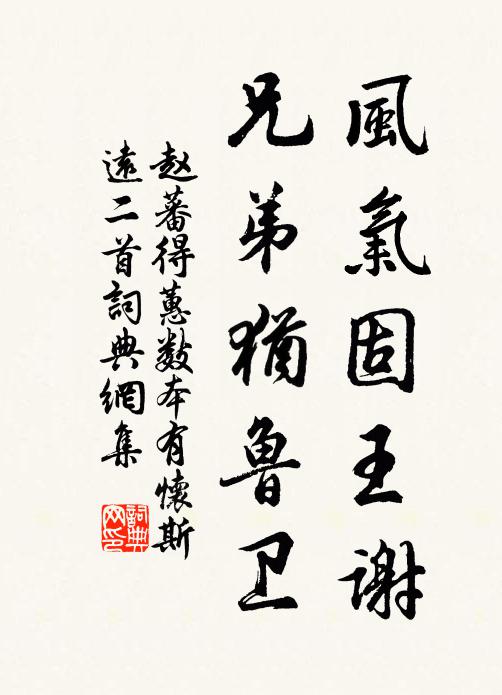 風氣固王謝
兄弟猶魯卫
赵蕃得蕙数本有懷斯
遠二首詞典網集
詞典
网印